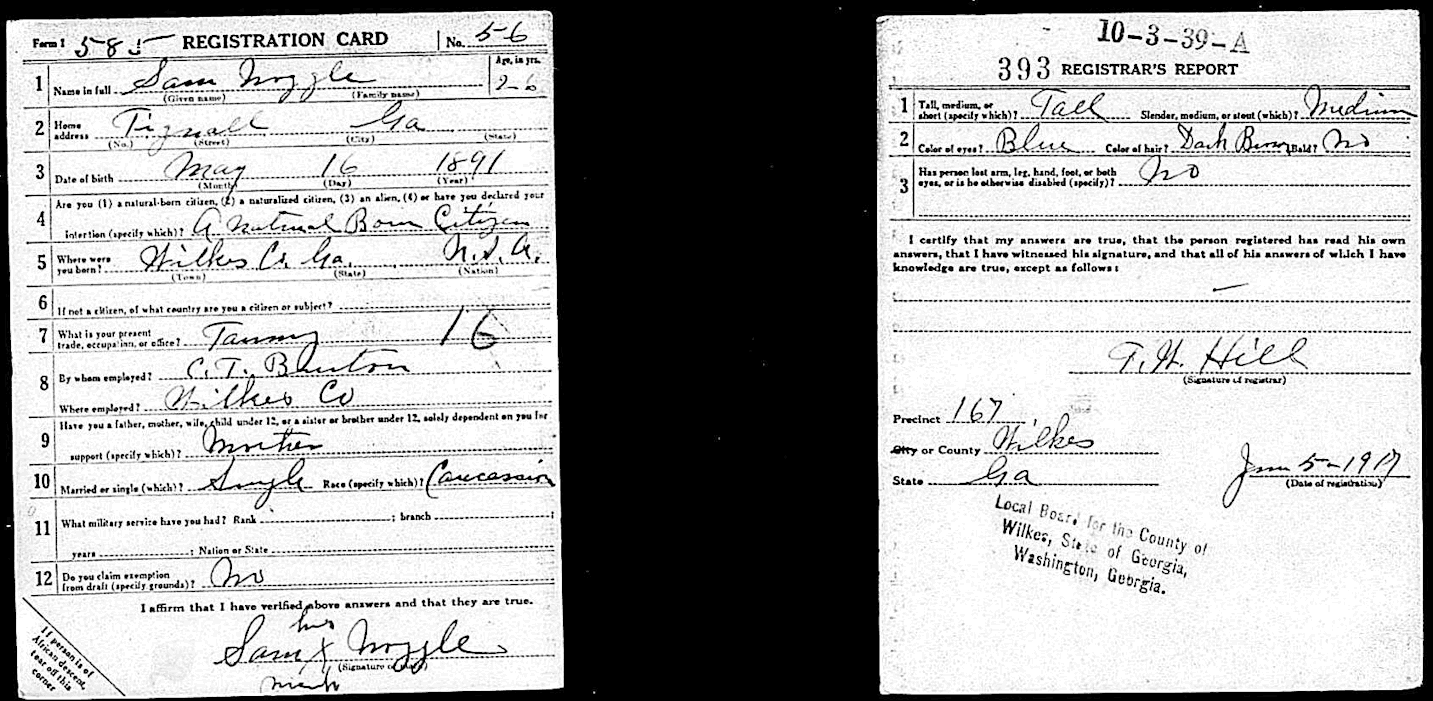 Form 1 585 REGISTRATION CARD No. 56
1 Name in full Sam Nozzle Age, in yrs. 26
(Given name) (Family name)
2 Home address Tignall Ga
(No.) (Street) (City) (State)
3 Date of birth May 16 1891
(Month) (Day) (Year)
4 Are you (1) a natural-born citizen, (2) a naturalized citizen, (3) an alien, (4) or have you declared your
intention (specify which)? A Natural Born Citizen
5 Where were you born? Wilkes Co. Ga. U.S.A.
(Town) (State) (Nation)
6 If not a citizen, of what country are you a citizen or subject?
7 What is your present trade, occupation, or office? 16
8 By whom employed? C. T. Blanton
Where employed? Wilkes Co
9 Have you a father, mother, wife, child under 12, or a sister or brother under 12, solely dependent on you for
support (specify which)? Mother
10 Married or single (which)? Single Race (specify which)? Caucassion
11 What military service have you had? Rank ; branch ;
years ; Nation or State
12 Do you claim exemption from draft (specify grounds)? No
I affirm that I have verified above answers and that they are true.
his
Sam X Nozzle
(Signature or mark)
mark
If person is of
African descent,
tear off this
corner
10-3-39-A
393 REGISTRAR'S REPORT
1 Tall, medium, or short (specify which)? Tall Slender, medium, or stout (which)? Medium
2 Color of eyes? Blue Color of hair? Dark Brown Bald? No
3 Has person lost arm, leg, hand, foot, or both eyes, or is he otherwise disabled (specify)? No
I certify that my answers are true, that the person registered has read his own
answers, that I have witnessed his signature, and that all of his answers of which I have
knowledge are true, except as follows:
T. W. Hill
(Signature of registrar)
Precinct 167
City or County Wilkes
State Ga
June 5-1917
(Date of registration)
Local Board for the County of
Wilkes, State of Georgia,
Washington, Georgia.